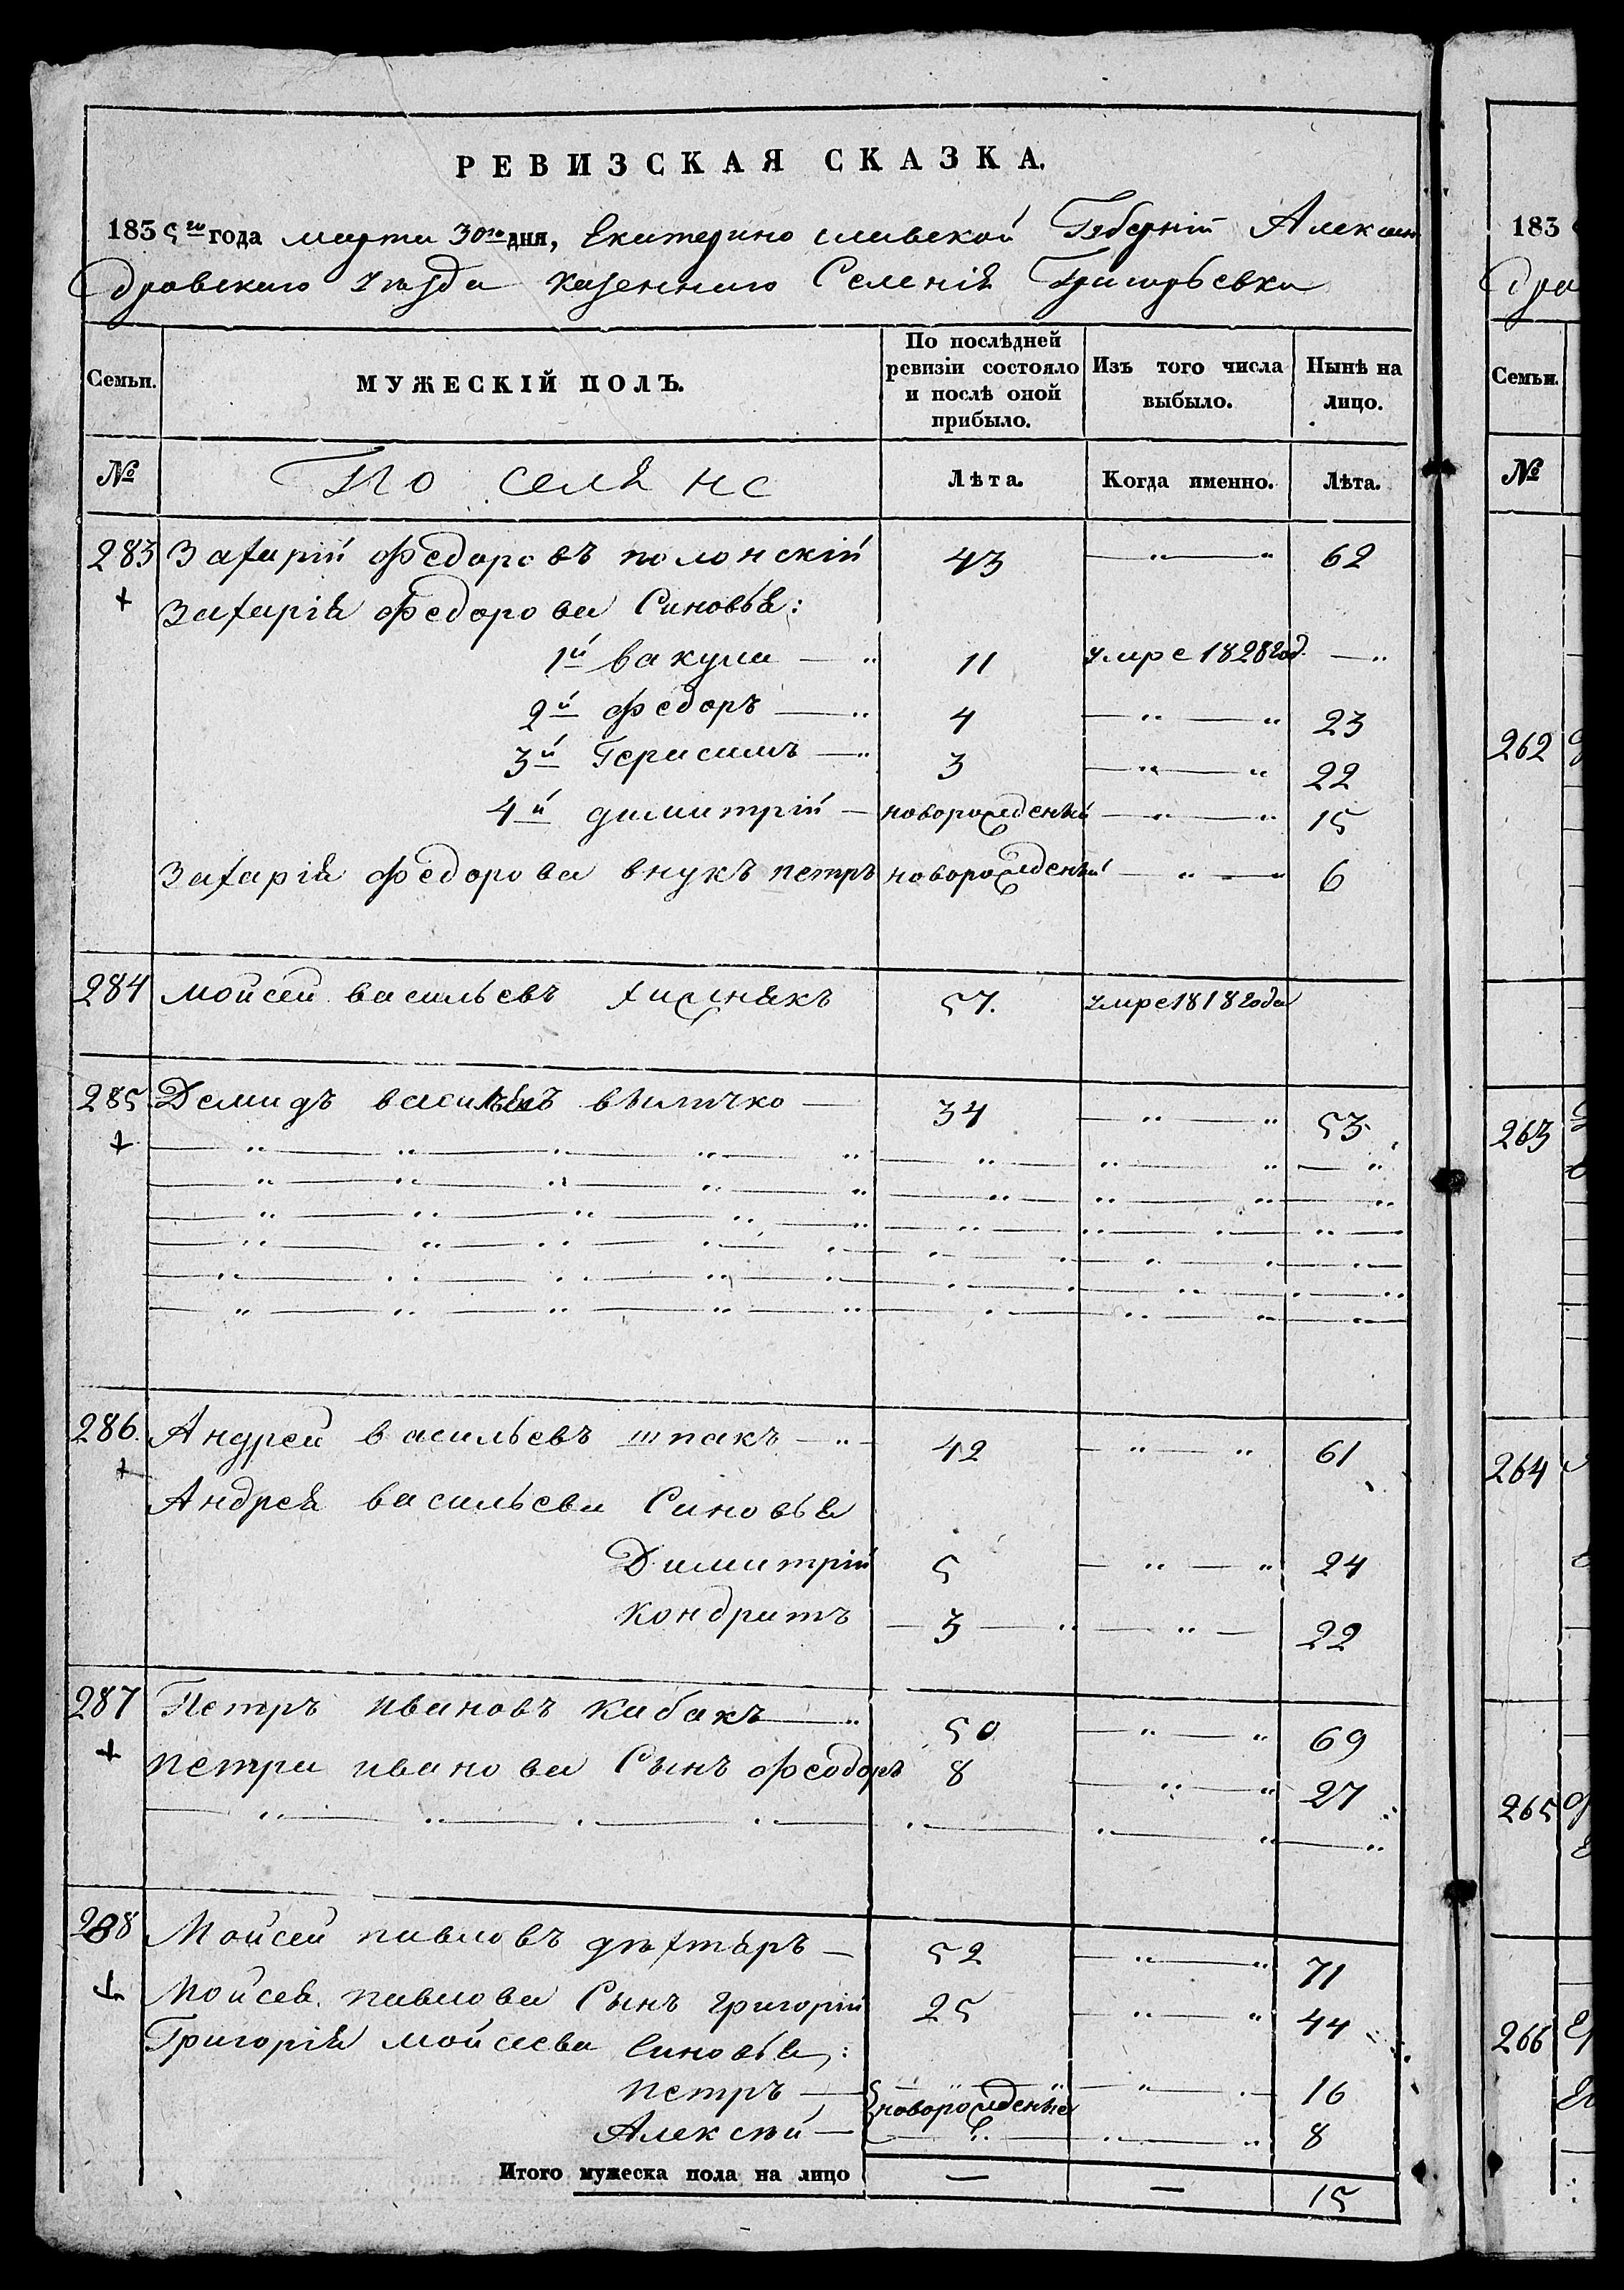 РЕВИЗСКАЯ СКАЗКА.
1835го года марта 30го дня, Екатерино славской Губерніи Алексан
дровскаго Уѣзда казеннаго Селенія Григорьевки
Семьи. МУЖЕСКІЙ ПОЛЪ. По послѣдней ревизіи состояло и послѣ оной прибыло. Изъ того числа выбыло. Нынѣ на лицо.
№ Поселяне Лѣта. Когда именно. Лѣта.
283 Захарій Федоровъ полонскій 43 — „ — „ 62
Захарія Федорова Синовья:
1й вакула — „ 11 умре 1828 год. — „
2й Федоръ — „ 4 — „ — „ 23
3й Герасимъ — „ 3 — „ — „ 22
4й димитрій — новорожденый — „ — „ 15
Захарія Федорова внукъ петръ новорожденый — „ — „ 6
284 мойсей васильевъ 57. умре 1818 года
285 Демидъ величко — 34 — „ — „ 53
286. Андрей васильевъ шпакъ — „ — 42 — „ — „ 61
Андрея васильева Синовья
Димитрій 5 — „ — „ 24
Кондратъ — 3 — „ — „ — 22
287 Петръ ивановъ Кабакъ — „ 50 — „ — „ 69
петра иванова Сынъ Феодоръ 8 — „ — „ 27
288 Мойсей павловъ дѣхтяръ — 52 — „ — „ 71
Мойсея павлова Сынъ григорій 25 — „ — „ 44
Григорія мойсеева Синовья:
петръ — новорожденые — „ — 16
Алексѣй — — „ 8
Итого мужеска пола на лицо — — 15
183
Семьи.
№
262
263
264
265
266